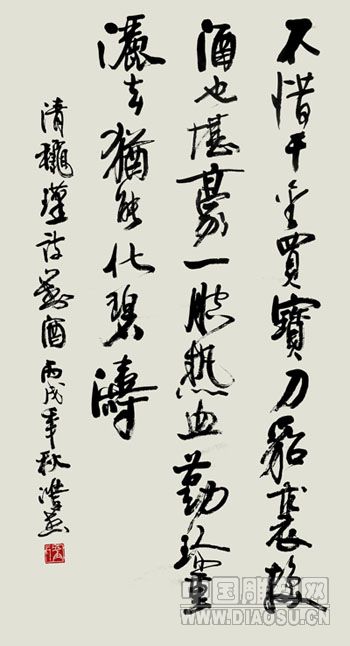 不惜千金買寶刀貂裘換
酒也堪豪一腔热血勤珍重
灑去猶能化碧濤
清龝瑾詩對酒丙戌年秋
中国雕塑网
WWW.DIAOSU.CN